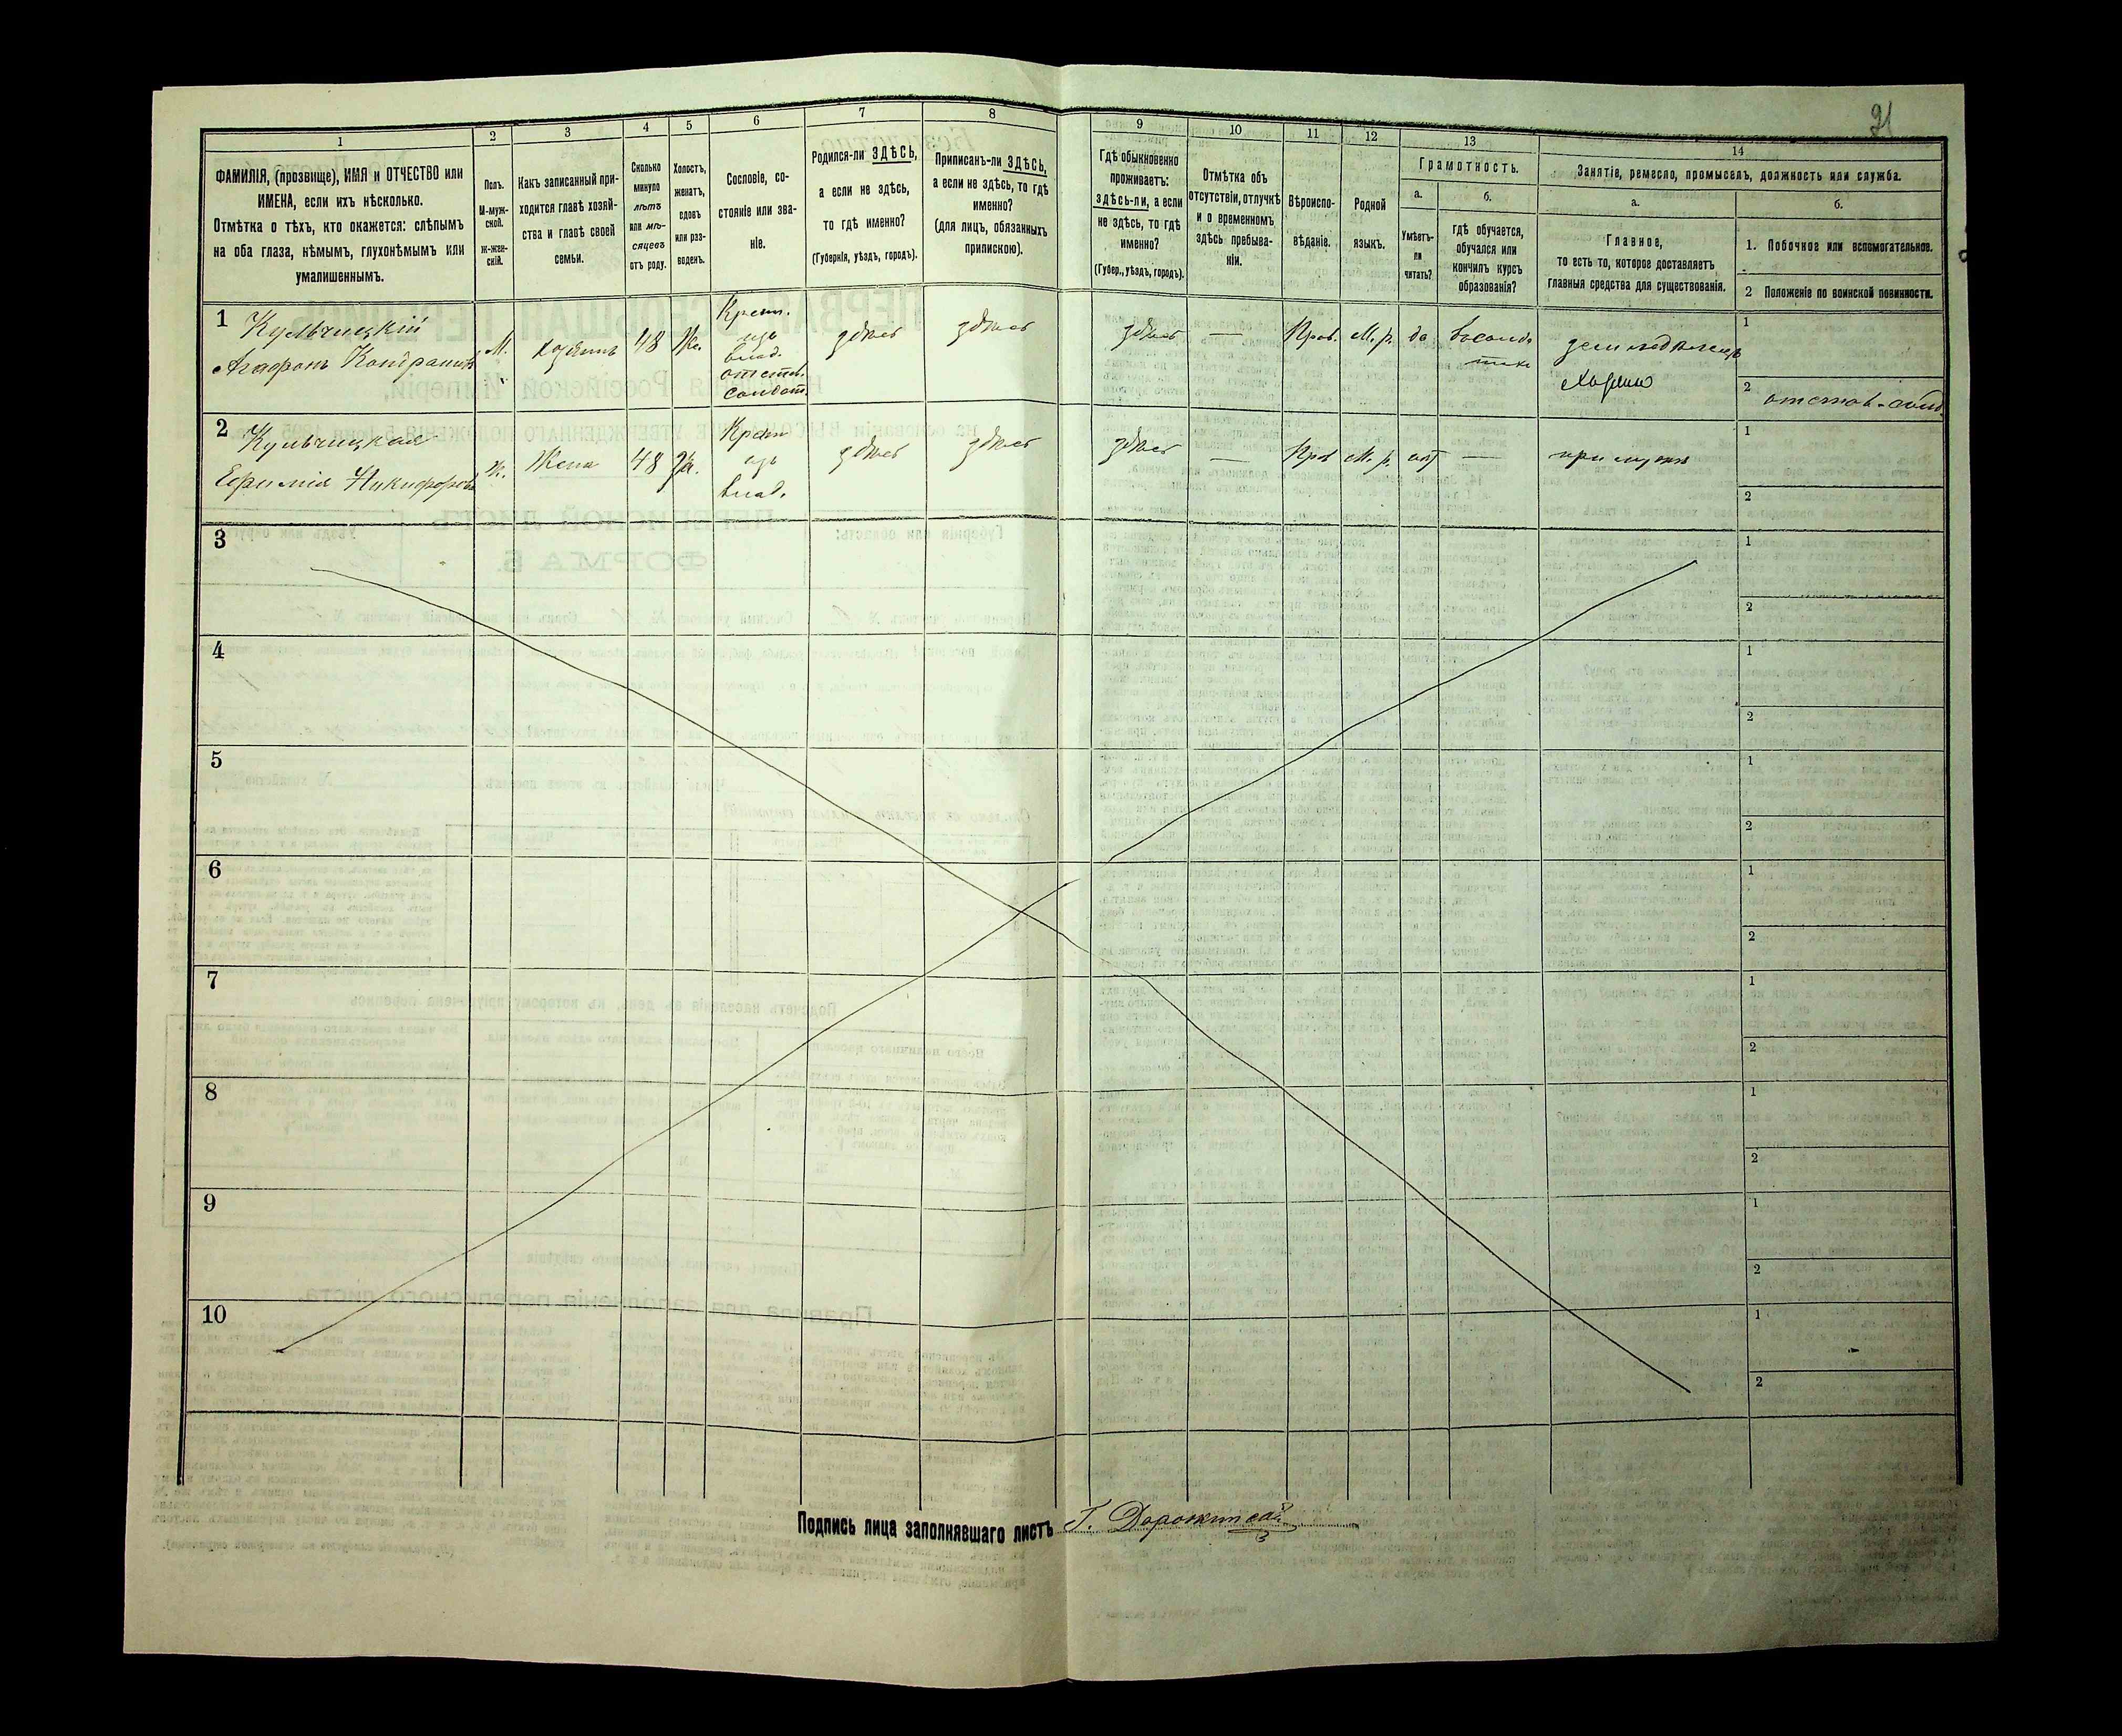 21
1
2
3
4
5
6
7
8
9
10
11
12
13
14
ФАМИЛІЯ, (прозвище), ИМЯ и ОТЧЕСТВО или
ИМЕНА, если ихъ нѣсколько.
Отмѣтка о тѣхъ, кто окажется: слѣпымъ
на оба глаза, нѣмымъ, глухонѣмымъ или
умалишеннымъ.
Полъ.
М-муж-
ской.
ж-жен-
скій.
Какъ записанный при-
ходится главѣ хозяй-
ства и главѣ своей
семьи.
Сколько
минуло
лѣтъ
или мѣ-
сяцевъ
отъ роду.
Холостъ,
женатъ,
вдовъ
или раз-
воденъ.
Сословіе, со-
стояніе или зва-
ніе.
Родился-ли ЗДѢСЬ,
а если не здѣсь,
то гдѣ именно?
(Губернія, уѣздъ, городъ).
Приписанъ-ли ЗДѢСЬ,
а если не здѣсь, то гдѣ
именно?
(для лицъ, обязанныхъ
припискою).
Гдѣ обыкновенно
проживаетъ:
здѣсь-ли, а если
не здѣсь, то гдѣ
именно?
(Губер., уѣздъ, городъ).
Отмѣтка объ
отсутствіи, отлучкѣ
и о временномъ
здѣсь пребыва-
ніи.
Вѣроиспо-
вѣданіе.
Родной
языкъ.
Грамотность.
а.
Умѣетъ-
ли
читать?
б.
гдѣ обучается,
обучался или
кончилъ курсъ
образованія?
Занятіе, ремесло, промыселъ, должность или служба.
а.
Главное,
то есть то, которое доставляетъ
главныя средства для существованія.
б.
1. Побочное или вспомогательное.
2 Положеніе по воинской повинности.
1 Кульчицкій
Агафонъ Кондратьев
М.
хозяинъ
48
Же.
Крест.
изъ
влад.
отстав.
солдат.
здѣсь
здѣсь
здѣсь
—
Прав.
М. р.
да
земледѣлецъ
хозяинъ
1
2 отстав.
2 Кульчицкая
Ефимія Никифорова
Ж.
Жена
48
За.
Крест
изъ
влад.
здѣсь
здѣсь
здѣсь
—
Прав
М. р.
нѣт
—
при мужѣ
1
2
3
1
2
4
1
2
5
1
2
6
1
2
7
1
2
8
1
2
9
1
2
10
1
2
Подпись лица заполнявшаго листъ Г.